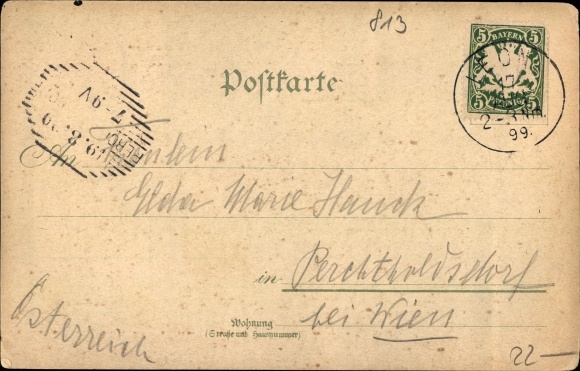 813
5 BAYERN 5
5 PFENNIG 5
17
2-3 Nm.
99.
Postkarte
7-9V
19.8.99
An Fräulein
Elda Marie Hauck
in Perchtholdsdorf
bei Wien
Österreich
Wohnung
(Straße und Hausnummer)
22-